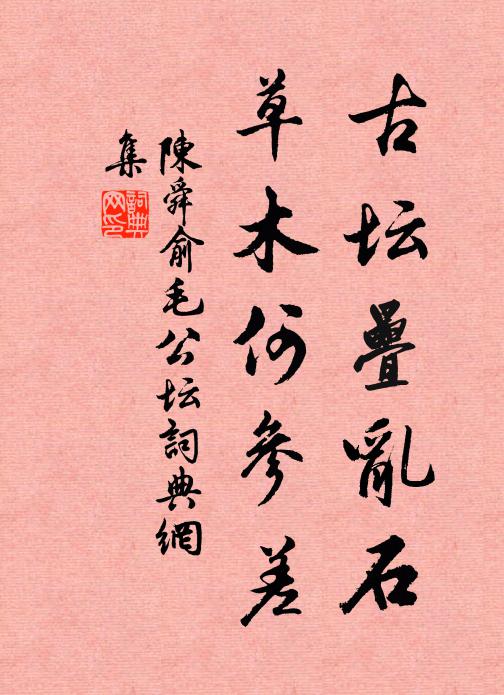 古坛疊亂石
草木何參差
陳舜俞毛公坛詞典網
集
詞典网印